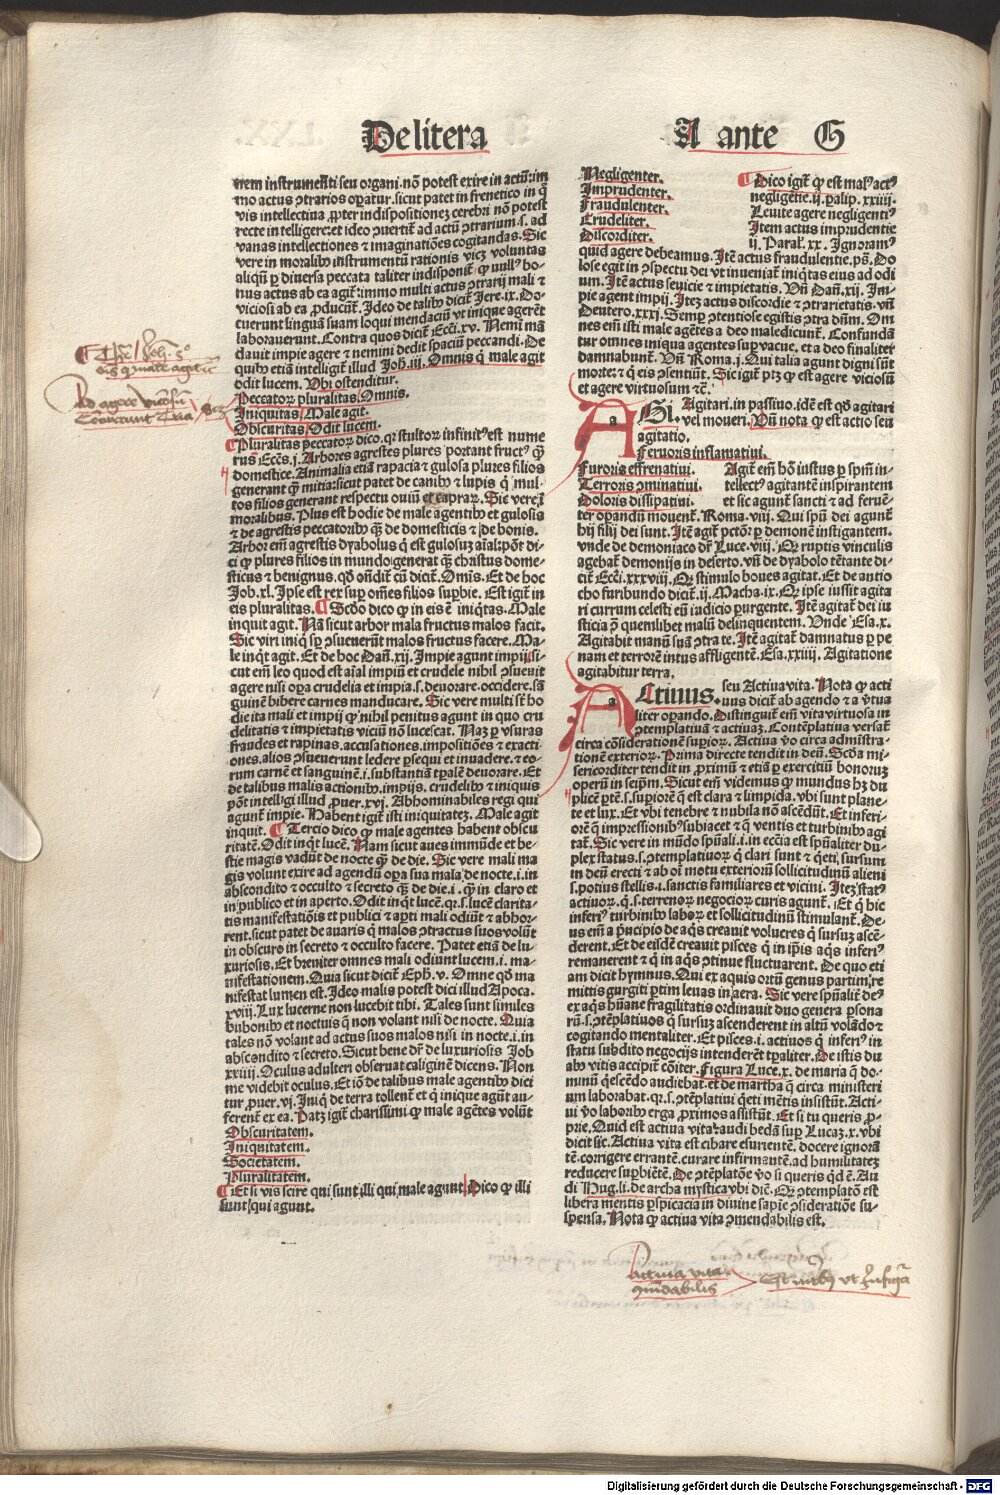 De litera
A ante G
trem instrumenti seu organi. nō potest exire in actū: im
mo actus ꝯtrarios oꝑatur. sicut patet in frenetico in q̄
vis intellectiua ꝓpter indispositionez cerebri nō potest
recte in telligere: et ideo ꝯuertit᷑ ad actū ꝯtrarium. s. ad
vanas intellectiones ⁊ imaginatiōes cogitandas. Sic
vere in moralibꝰ instrumentū rationis vicz voluntas
aliqñ ꝑ diuersa peccata taliter indisponit᷑ ꝙ nullꝰ bo-
nus actus ab ea agit᷑: immo multi actus ꝯtrarij mali ⁊
viciosi ab ea ꝓducunt᷑. Ideo de talibꝰ dicit᷑ Jere. ix. Do-
cuerunt linguā suam loqui mendaciū vt inique agerēt
laborauerunt. Contra quos dicit᷑ Ecci. xv. Nemi mā
dauit impie agere ⁊ nemini dedit spaciū peccandi. De
quibꝰ etiā intelligit᷑ illud Joh. iij. Omnis q̄ male agit
odit lucem. Vbi ostenditur.
Peccatoꝝ pluralitas. Omnis.
Iniquitas. Male agit.
Obscuritas. Odit lucem.
Pluralitas peccatoꝝ dico. qꝛ stultoꝝ infinitꝰ est nume
rus Eccs. j. Arbores agrestes plures portant fructꝰ q̄
domestice. Animalia etiā rapacia ⁊ gulosa plures filios
generant q̄ mitia: sicut patet de canibꝰ ⁊ lupis q̄ mul-
tos filios generant respectu ouiū et capraꝝ. Sic vere ī
moralibus. Plus est hodie de male agentibꝰ et gulosis
⁊ de agrestis peccatoribꝰ q̄ de domesticis ⁊ de bonis.
Arboꝝ em̄ agrestis dyabolus q̄ est gulosuz aīal: pōt di-
ci ꝙ plures filios in mundo generat q̄ christus dome-
sticus ⁊ benignus. qd̓ oñdit᷑ cū dicit᷑. Omīs. Et de hoc
Job. xl. Ipse est rex suꝑ om̄es filios suꝑbie. Est igit᷑ in
eis pluralitas. Scd̓o dico ꝙ in eis ē iniq̄tas. Male
inquit agit. Nā sicut arbor mala fructus malos facit.
Sic viri iniq̄ sp̄ ꝯsueuerūt malos fructus facere. Ma-
le inq̄t agit. Et de hoc Dañ. xij. Impie agunt impij. si-
cut em̄ leo quod est aīal impiū et crudele nihil ꝯsueuit
agere nisi oꝑa crudelia et impia. s. deuorare. occidere. sā
guinē bibere carnes manducare. Sic vere multi st̄ ho
die ita mali et impij ꝙ nihil penitus agunt in quo cru
delitatis ⁊ impietatis viciū nō lucescat. Naz ꝑ vsuras
fraudes et rapinas. accusationes. impositiōes ⁊ exacti
ones. alios ꝯsueuerunt ledere ꝑsequi et inuadere. ⁊ eo-
rum carnē et sanguinē. i. substantiā tꝑalē deuorare. Et
de talibus malis actionibꝰ. impijs. crudelibꝰ ⁊ iniquis
pōt intelligi illud ꝓuer. xvj. Abhominabiles regi qui
agunt᷑ impie. Habent igit᷑ isti iniquitatez. Male agit
inquit. Tercio dico ꝙ male agentes habent obscu
ritatē. Odit inq̄t lucē. Nam sicut aues immūde et be-
stie magis vadūt de nocte q̄ de die. Sic vere mali ma
gis volunt exire ad agendū oꝑa sua mala de nocte. i. in
abscondito ⁊ occulto ⁊ secreto q̄ de die. i. q̄ in claro et
in publico et in aperto. Odit in q̄t lucē. qꝛ. s. lucē clarita-
tis manifestatiōis et publici ⁊ aꝑti mali odiūt ⁊ abhor-
rent. sicut patet de auaris q̄ malos ꝯtractus suos volūt
in obscuro in secreto ⁊ occulto facere. Patet etiā de lu-
xuriosis. Et breuiter omnes mali odiunt lucem. i. ma-
nifestationem. Quia sicut dicit᷑ Eph̓. v. Omne qd̓ ma
nifestat lumen est. Ideo malis potest dici illud Apoca.
xviij. Lux lucerne non lucebit tibi. Tales sunt similes
bubonibꝰ et noctuis q̄ non volant nisi de nocte. Quia
tales nō volant ad actus suos malos nisi in nocte. i. in
abscondito ⁊ secreto. Sicut bene dr̄ de luxuriosis Job
xxiiij. Oculus adulteri obseruat caliginē dicens. Non
me videbit oculus. Et iō de talibus male agentibꝰ dici
tur ꝓuer. vj. Iniq̄ de terra tollent᷑ et q̄ inique agūt au-
ferent᷑ ex ea. Patz igit᷑ charissimi ꝙ male agētes volūt
Obscuritatem.
Iniquitatem.
Societatem.
Pluralitatem.
Et si vis scire qui sunt illi qui male agunt Dico ꝙ illi
sunt qui agunt.
Negligenter.
Imprudenter.
Fraudulenter.
Crudeliter.
Discorditer.
Dico igit᷑ ꝙ est malꝰ actꝰ
negligētie. ij. ꝑalip. xxiiij.
Leuite agere negligentiꝰ
Item actus imprudentie
ij. Paral̓. xx. Ignoramꝰ
quid agere debeamus. Itē actus fraudulentie. ps̄. Do
lose egit in ꝯspectu dei vt inueniat᷑ iniq̄tas eius ad odi
um. Itē actus seuicie ⁊ impietatis. Vñ Dañ. xij. Im-
pie agent impij. Itez actus discordie ⁊ ꝯtrarietatis. vñ
Deutero. xxxj. Semꝑ ꝯtentiose egistis ꝯtra dn̄m. Om
nes em̄ isti male agētes a deo maledicunt᷑. Confundā
tur omnes iniqua agentes suꝑ vacue. et a deo finaliter
damnabunt᷑. Vñ Roma. j. Qui talia agunt digni sūnt
morte: ⁊ q̄ eis ꝯsentiūt. Sic igit᷑ ptz ꝙ est agere viciosū
et agere virtuosum ⁊c̄.
AGi. Agitari. in passiuo. idē est qd̓ agitari
vel moueri. Vñ nota ꝙ est actio seu
agitatio.
Feruoris inflamatiui.
Furoris effrenatiui.
Terroris ꝯminatiui.
Doloris dissipatiui.
Agit᷑ em̄ hō iustus ꝑ spm̄ in-
tellectꝰ agitantē inspirantem
et sic agunt᷑ sancti ⁊ ad feruē-
ter oꝑandū mouent᷑. Roma. viij. Qui spū dei agunt᷑
hij filij dei sunt. Itē agit᷑ pctōr̄ ꝑ demonē instigantem.
vnde de demoniaco dr̄ Luce. viij. Qꝛ ruptis vinculis
agebat᷑ demonijs in deserto. vñ de dyabolo tētante di-
cit᷑ Ecci. xxxviij. Qꝛ stimulo boues agitat. Et de antio
cho furibundo dicit᷑. ij. Macha. ix. Qꝛ ipse iussit agita
ri currum celesti em̄ iudicio ꝑurgente. Itē agitat᷑ dei iu
sticia ꝓ quemlibet malū delinquentem. Vnde Esa. x.
Agitabit manū suā ꝯtra te. Itē agitat᷑ damnatus ꝑ pe
nam et terrorē intus affligentē. Esa. xxiiij. Agitatione
agitabitur terra.
ACtiuus. seu Actiua vita. Nota ꝙ acti
uus dicit᷑ ab agendo ⁊ a v̓tua
liter oꝑando. Distinguit᷑ em̄ vita virtuosa in
ꝯtemplatiuā ⁊ actiuaꝫ. Contēplatiua versat᷑
circa cōsiderationē suꝑioꝝ. Actiua v̓o circa admistra-
tionē exterioꝝ. Prima directe tendit in deū. Scd̓a mi
sericorditer tendit in ꝓximū ⁊ etiā ꝑ exercitiū bonoruz
operū in seip̄m. Sicut em̄ videmus ꝙ mundus hꝫ du
plicē ꝑtē. s. suꝑiorē q̄ est clara ⁊ limpida. vbi sunt plane-
te et lux. Et vbi tenebre ⁊ nubila nō ascēdūt᷑. Et inferi-
orē q̄ impressionibꝰ subiacet ⁊ q̄ ventis et turbinibꝰ agi
tat᷑. Sic vere in mūdo spūali. i. in eccīa est spūaliter du-
plex status. s. ꝯtemplatiuoꝝ q̄ clari sunt ⁊ q̄eti sursum
in deū erecti ⁊ ab oī motu exterioꝝ sollicitudinū alieni
s. potius stellis. i. sanctis familiares et vicini. Itez statꝰ
actiuoꝝ. q̄. s. terrenoꝝ negocioꝝ curis agunt᷑. Et q̄ hic
inferiꝰ turbinibꝰ laboꝝ et sollicitudinū stimulant᷑. De-
us em̄ a pricipio de aq̄s creauit volucres q̄ sursuꝫ ascē-
derent. Et de eisdē creauit pisces q̄ in ip̄is aq̄s inferiꝰ
remanerent ⁊ q̄ in aq̄s ꝯtinue fluctuarent. De quo eti
am dicit hymnus. Qui ex aquis ortū genus partim re
mittis gurgiti ꝑtim leuas in aera. Sic vere spūalit᷑ deꝰ
ex aq̄s hūane fragilitatis ordinauit duo genera ꝑsona
rū. s. ꝯtēplatiuos q̄ sursuꝫ ascenderent in altū volādo ⁊
cogitando mentaliter. Et pisces. i. actiuos q̄ inferiꝰ in
statu subdito negocijs intenderēt tꝑaliter. De istis du
abꝰ vitis accipit᷑ cōiter. Figura Luce. x. de maria q̄ do-
minū q̄escēdo audiebat. et de martha q̄ circa ministeri
um laborabat. qꝛ. s. ꝯtēplatiui q̄eti mētis insistūt. Acti-
ui v̓o laboribꝰ erga ꝓximos assistūt. Et si tu queris ꝓ-
prie. Quid est actiua vita: audi bedā suꝑ Lucaꝫ. x. vbi
dicit sic. Actiua vita est cibare esurientē. docere ignorā
tē. corrigere errantē. curare infirmantē. ad humilitatez
reducere suꝑbiētē. De ꝯtēplatōe v̓o si queris qd ē. Au
di Hug. li. de archa mystica vbi dic̄. Qꝛ ꝯtemplatō est
libera mentis ꝑspicacia in diuine sapīe ꝯsideratiōe su-
spensa. Nota ꝙ actiua vita ꝯmendabilis est.
Actiua vita
ꝯmēdabilis